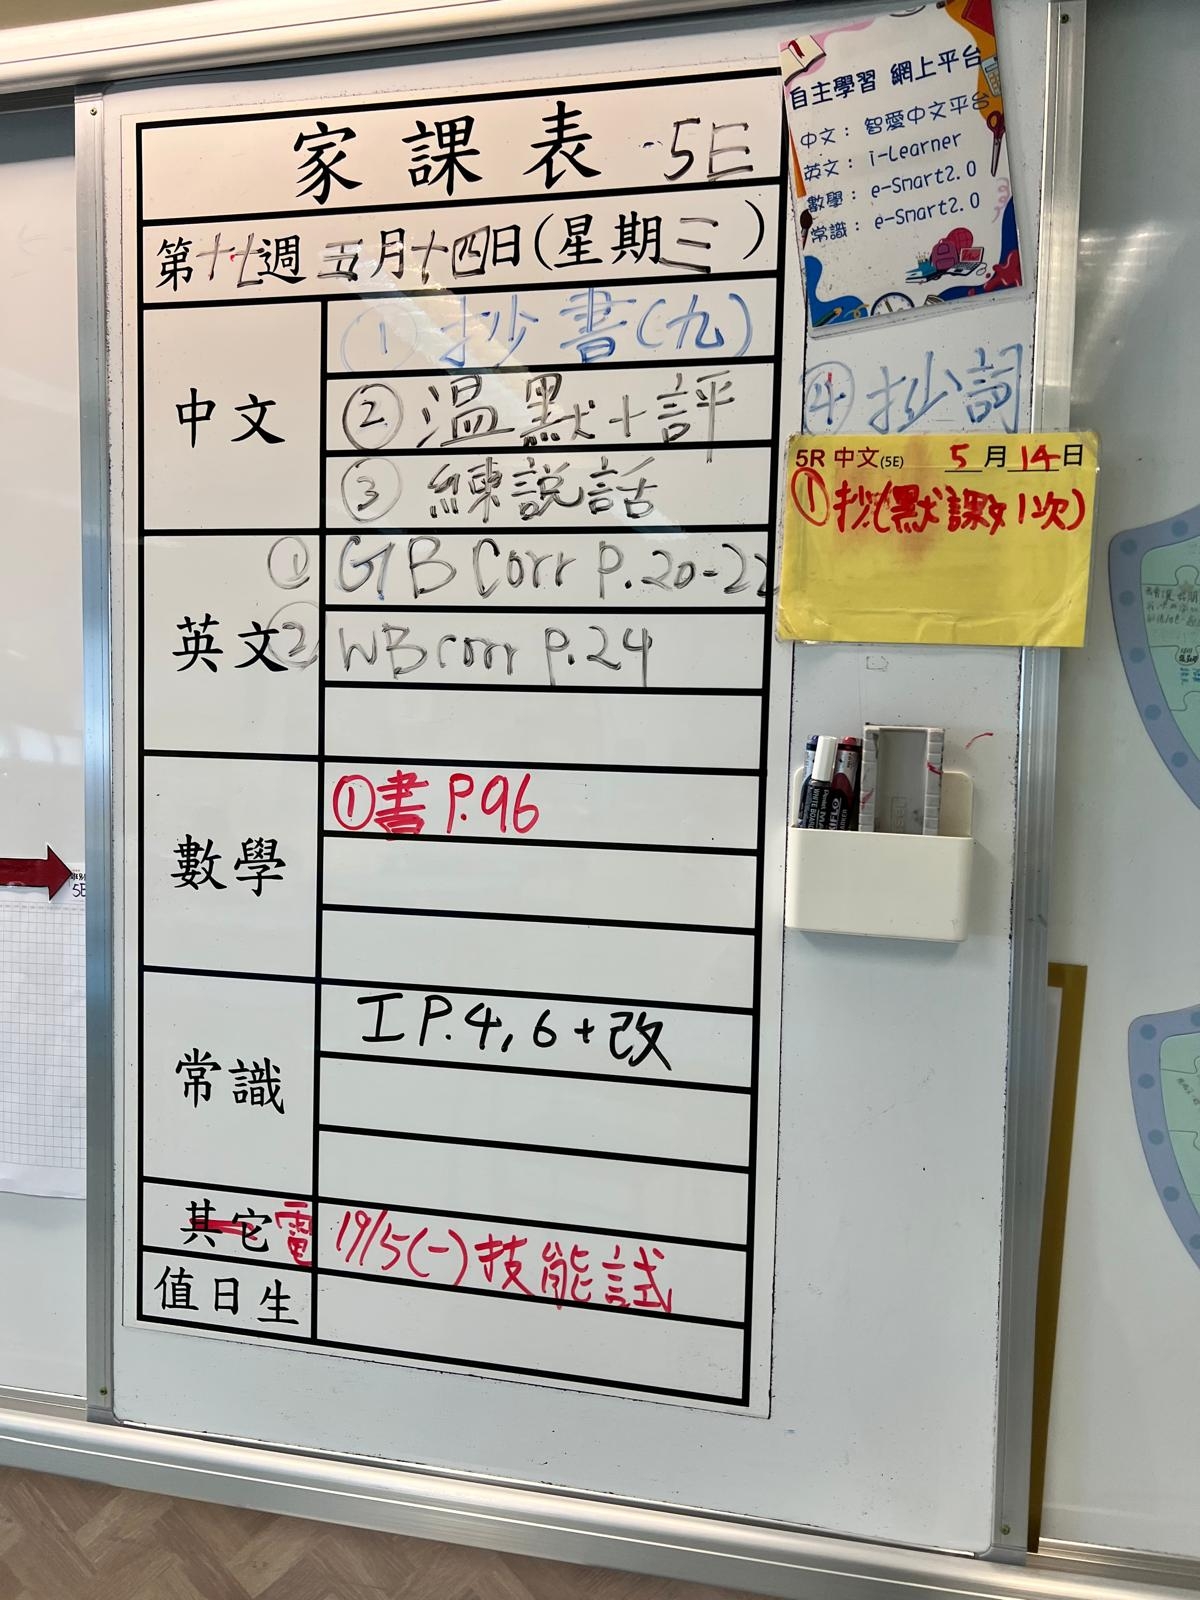 家課表 5E
第十七週 五月十四日(星期三)
中文
① 抄書(九)
② 温默+評
③ 練說話
④ 抄詞
英文
① GB Corr P.20-22
② WB corr P.24
數學
① 書 P.96
常識
工 P.4, 6 + 改
其它 電
19/5(一) 技能試
值日生
自主學習 網上平台
中文: 智愛中文平台
英文: i-Learner
數學: e-Smart2.0
常識: e-Smart2.0
5R 中文(5E) 5月14日
① 抄(默課文1次)
5E